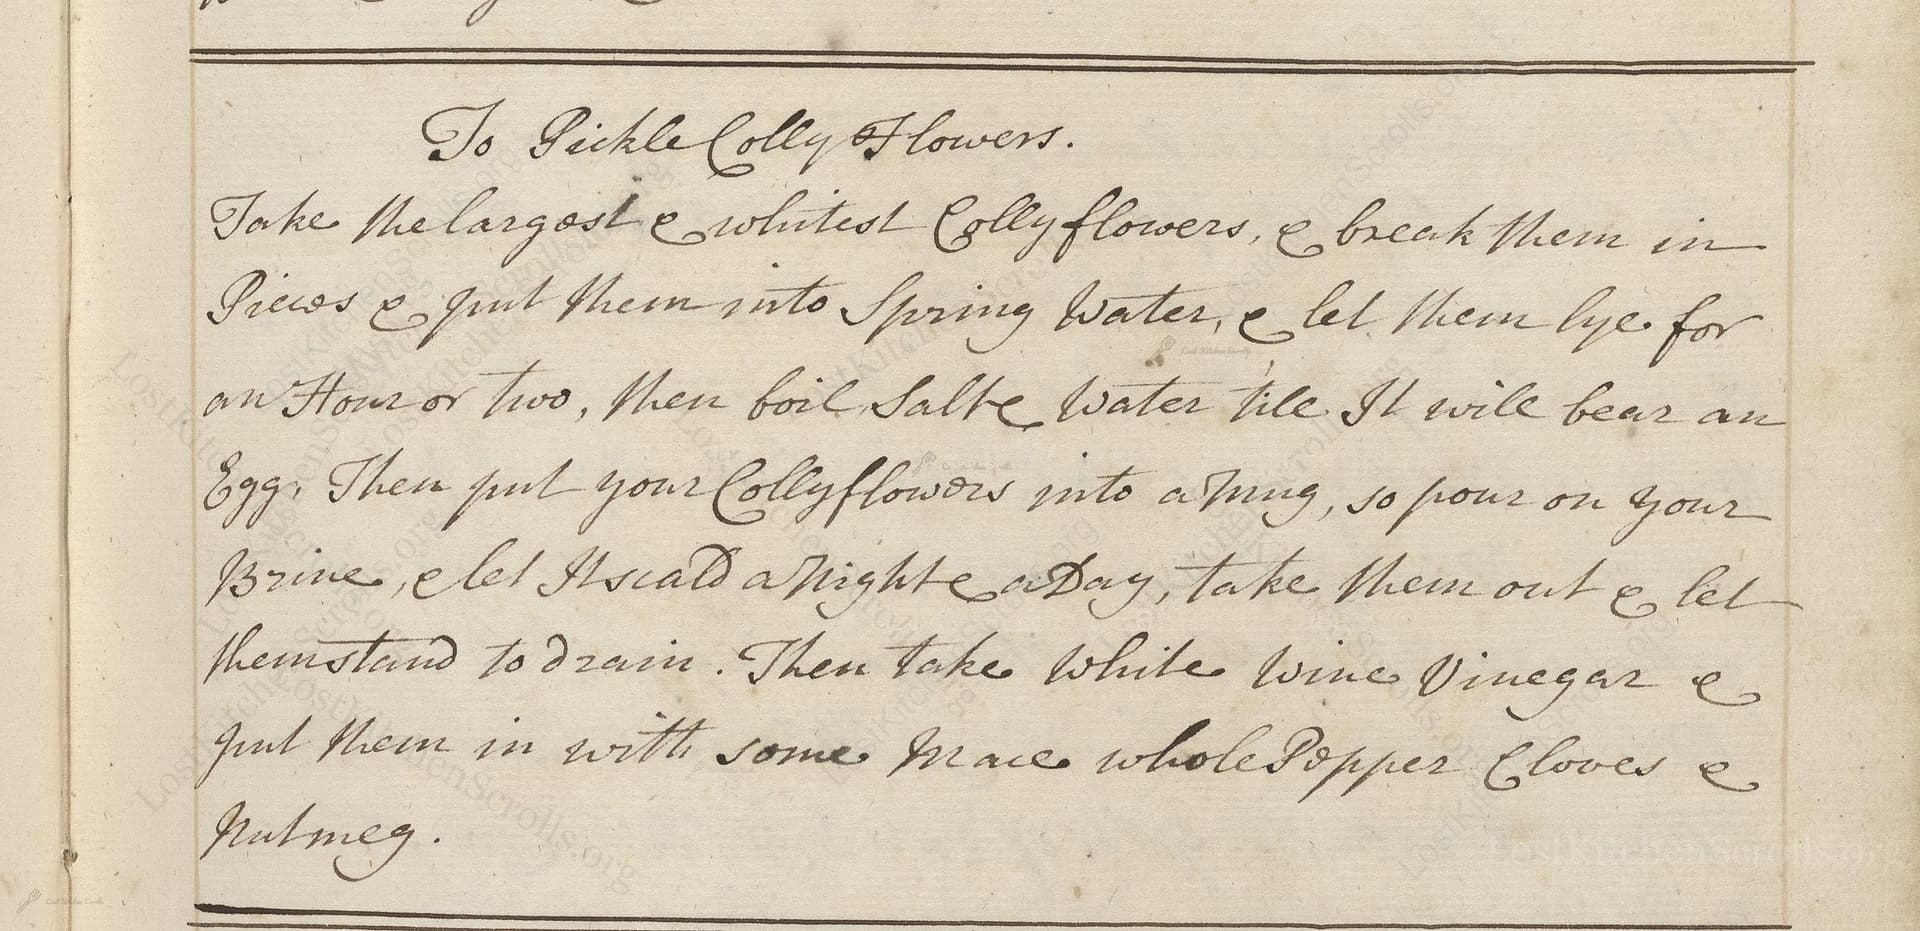 To Pickle Colly Flowers.
Take the largest & whitest Collyflowers, & break them in
Pieces & put them into Spring Water, & let them lye for
an Hour or two, then boil Salt & Water till It will bear an
Egg, Then put your Collyflowers into a Mug, so pour on your
Brine, & let It scald a Night & a Day, take them out & let
them stand to drain. Then take White Wine Vinegar &
put them in with some Mace whole Pepper Cloves &
Nutmeg.
LostKitchenScrolls.org